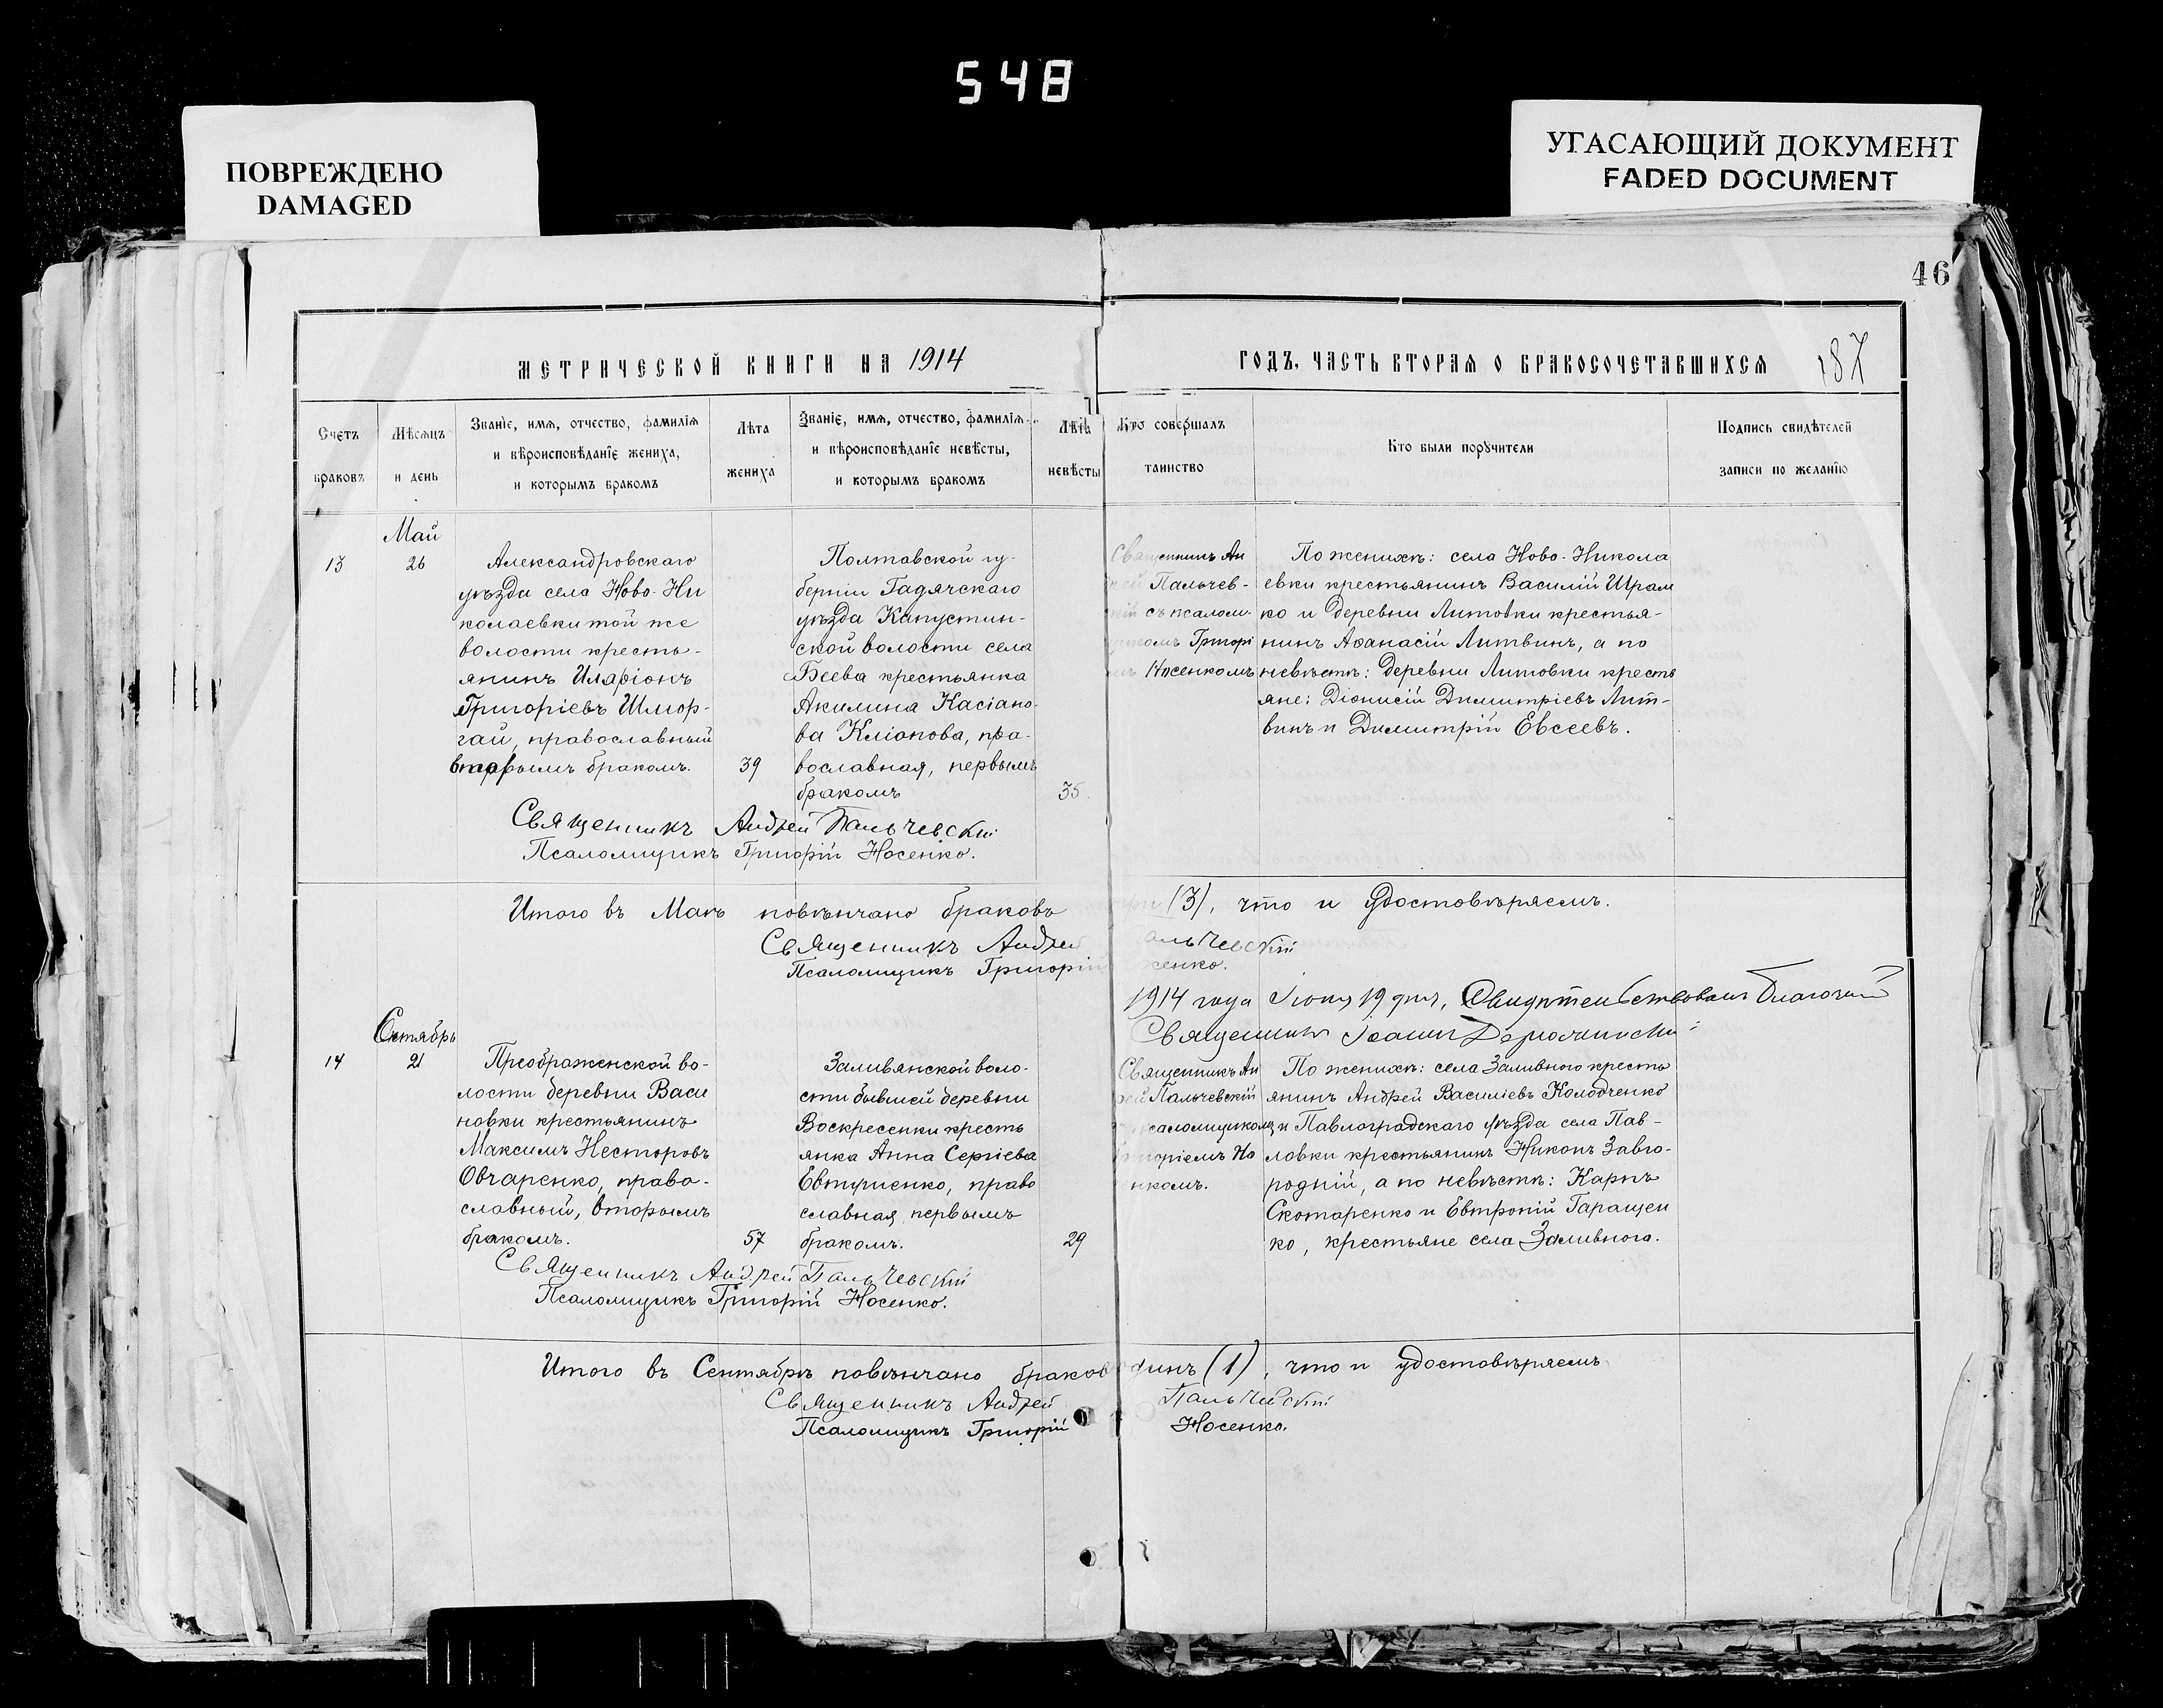 548
ПОВРЕЖДЕНО
DAMAGED
УГАСАЮЩИЙ ДОКУМЕНТ
FADED DOCUMENT
46
МЕТРИЧЕСКОЙ КНИГИ НА 1914
ГОДЪ, ЧАСТЬ ВТОРАЯ О БРАКОСОЧЕТАВШИХСЯ
187
Счетъ
браковъ
Мѣсяцъ
и день
Званіе, имя, отчество, фамилія
и вѣроисповѣданіе жениха,
и которымъ бракомъ
Лѣта
жениха
Званіе, имя, отчество, фамилія
и вѣроисповѣданіе невѣсты,
и которымъ бракомъ
Лѣта
невѣсты
Кто совершалъ
таинство
Кто были поручители
Подпись свидѣтелей
записи по желанію
13
Май
26
Александровскаго
уѣзда села Ново-Ни
колаевки той же
волости кресть-
янинъ Иларіонъ
Григоріевъ Шмор-
гай, православный
вторымъ бракомъ.
39
Полтавской гу-
берніи Гадячскаго
уѣзда Капустин-
ской волости села
Беева крестьянка
Акилина Касіано-
ва Кліопова, пра-
вославная, первымъ
бракомъ
35.
Священникъ Ан
рей Пальчев-
кій съ псалом-
щикомъ Григорі
мъ Носенкомъ
По женихѣ: села Ново-Никола
евки крестьянинъ Василій Шрам
ко и деревни Литовки крестья-
нинъ Аѳанасій Литвинъ, а по
невѣстѣ: деревни Литовки кресть
яне: Діонисій Димитріевъ Лит-
винъ и Димитрій Евсеевъ.
Священникъ Андрей Пальчевскій
Псаломщикъ Григорій Носенко.
Итого въ Маѣ повѣнчано браковъ три (3), что и удостовѣряемъ.
Священникъ Андрей Пальчевскій
Псаломщикъ Григорій Носенко.
1914 года Іюня 19 дня, Свидѣтельствовалъ Благочин
Священникъ Іоаннъ
14
Сентябрь
21
Преображенской во-
лости деревни Васи
новки крестьянинъ
Максимъ Несторовъ
Овчаренко, право-
славный, вторымъ
бракомъ.
57
Заливянской воло-
сти бывшей деревни
Воскресенки кресть
янка Анна Сергіева
Евтушенко, право
славная, первымъ
бракомъ.
29
Священникъ Ан
рей Пальчевскій
псаломщикомъ
Григоріемъ Но
нкомъ.
По женихѣ: села Заливного кресть
янинъ Андрей Василіевъ Колодченко
и Павлоградскаго уѣзда села Пав-
ловки крестьянинъ Никонъ Завго-
родній, а по невѣстѣ: Карпъ
Скотаренко и Евтропій Гаращен
ко, крестьяне села Заливного.
Священникъ Андрей Пальчевскій
Псаломщикъ Григорій Носенко.
Итого въ Сентябрѣ повѣнчано браков динъ (1), что и удостовѣряемъ
Священникъ Андрей Пальчевскій
Псаломщикъ Григорій Носенко.